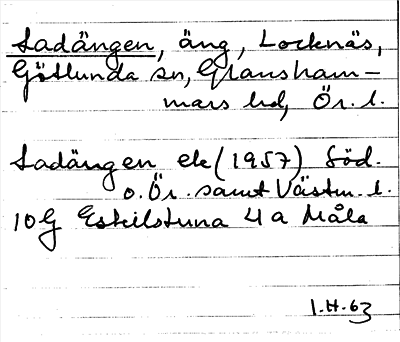 Ladängen, äng, Locknäs,
Götlunda sn, Glansham-
mars hd, Ör. l.
Ladängen ek (1957) Söd.
o. Ör. samt Västm. l.
10G Eskilstuna 4a Måla
I.H. 63